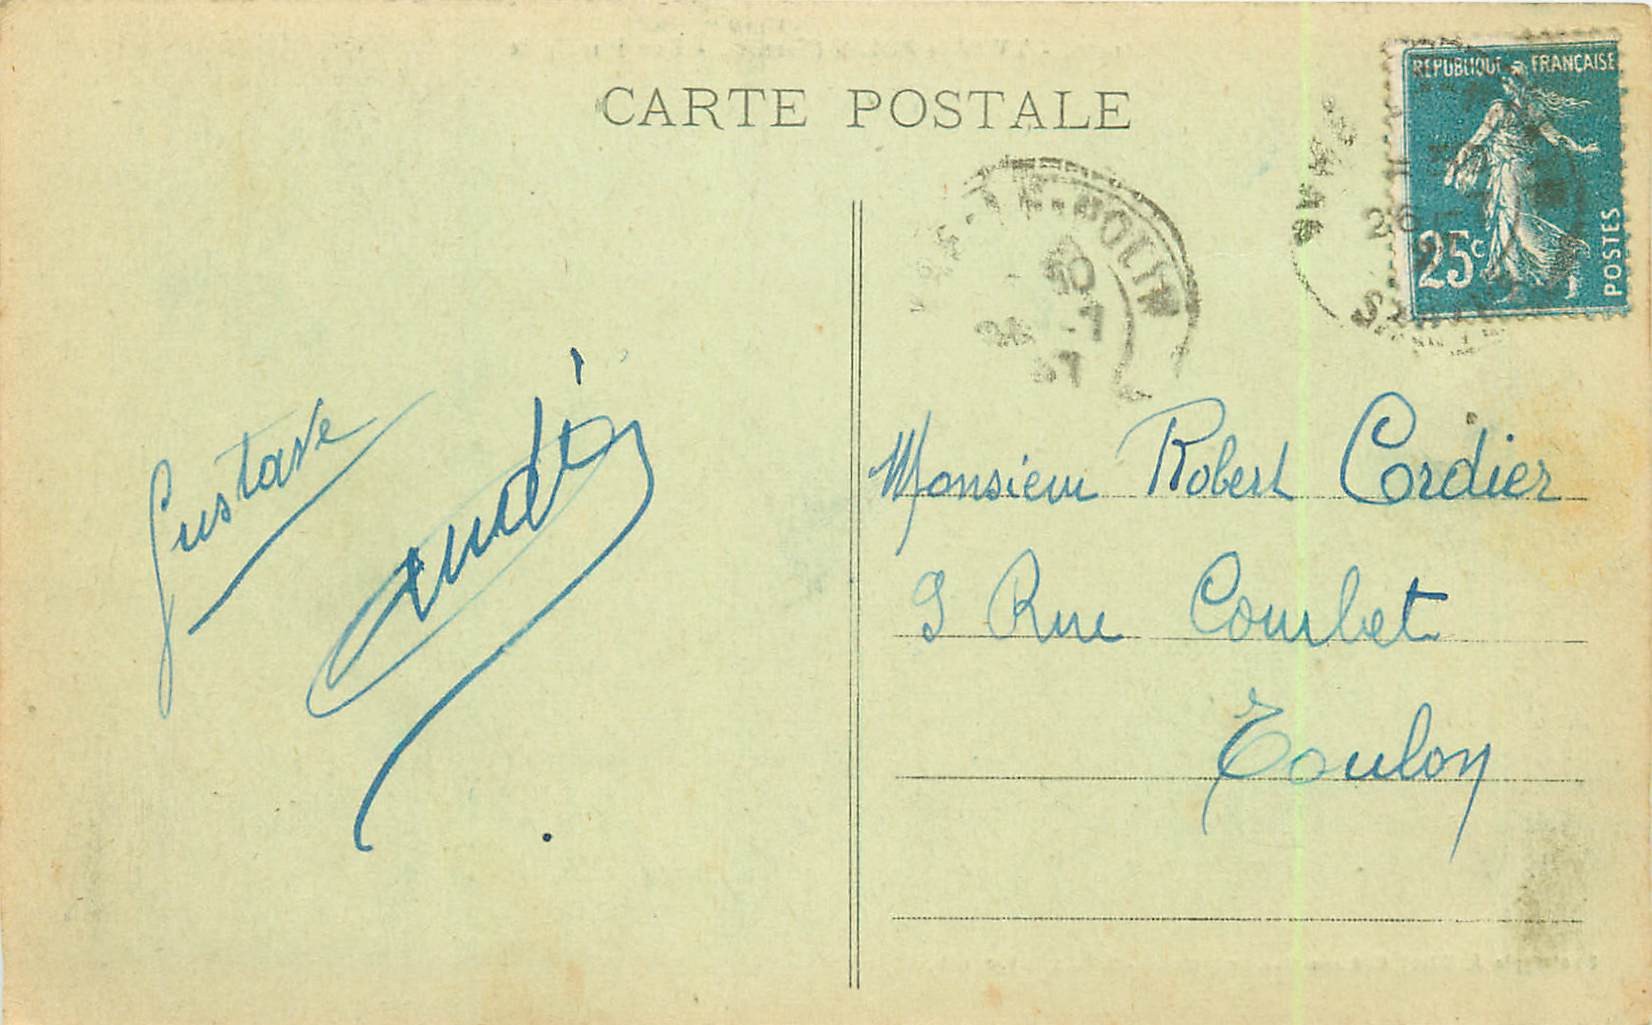 CARTE POSTALE
RÉPUBLIQUE FRANÇAISE
25c
POSTES
Gustave
Audé
Monsieur Robert Cordier
9 Rue Courbet
Toulon